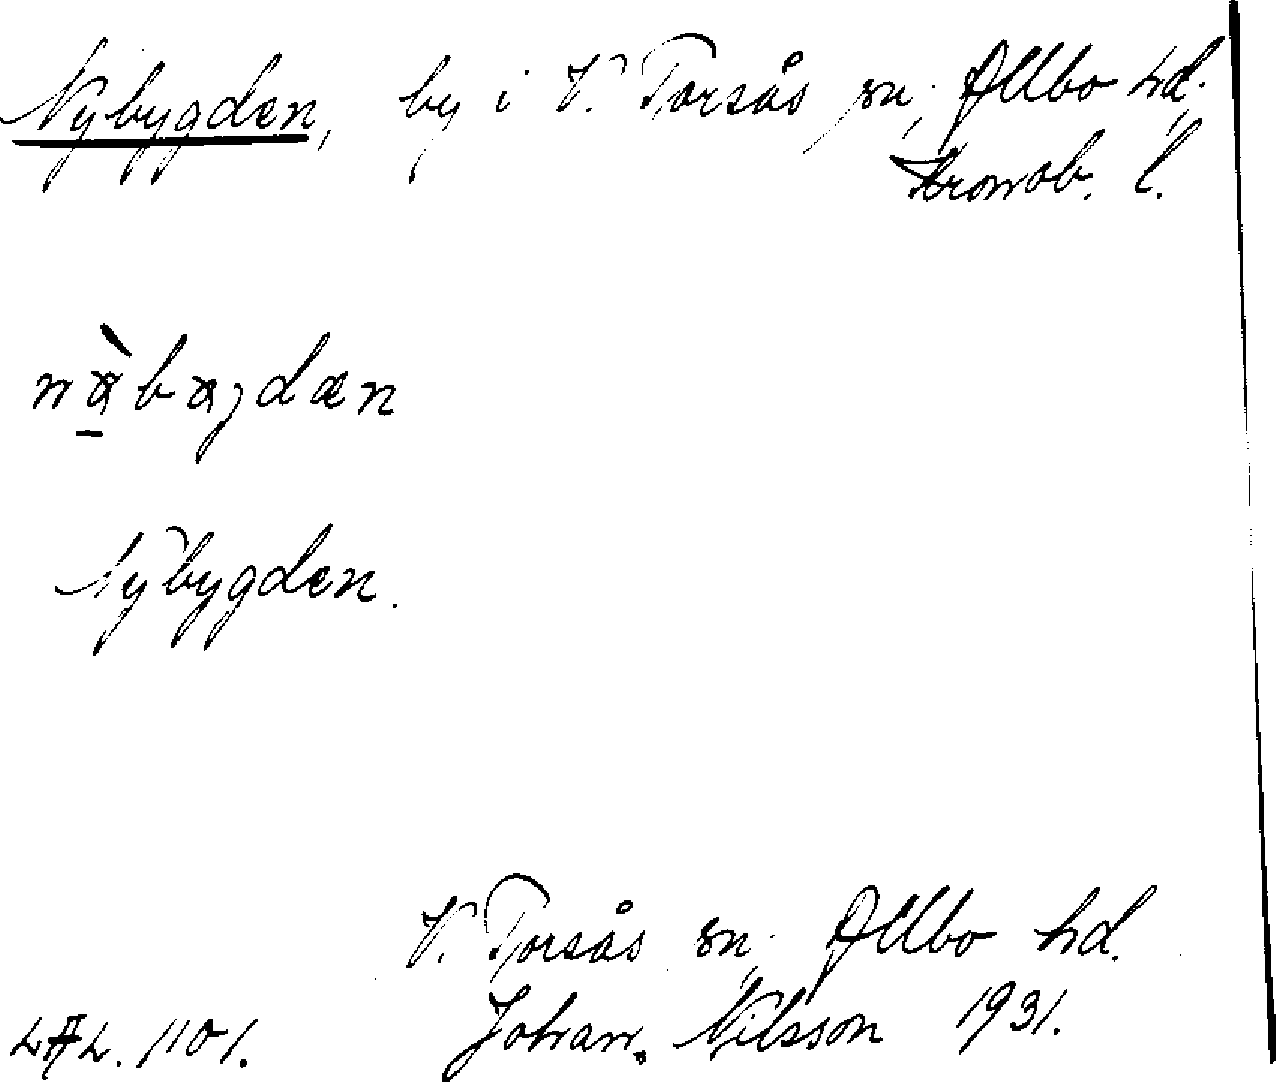 Nybygden, by i V. Torsås sn; Allbo hd.
Kronob. l.
Nybygden.
V. Torsås sn; Allbo hd.
LAL. 1101. Johan Nilsson 1931.